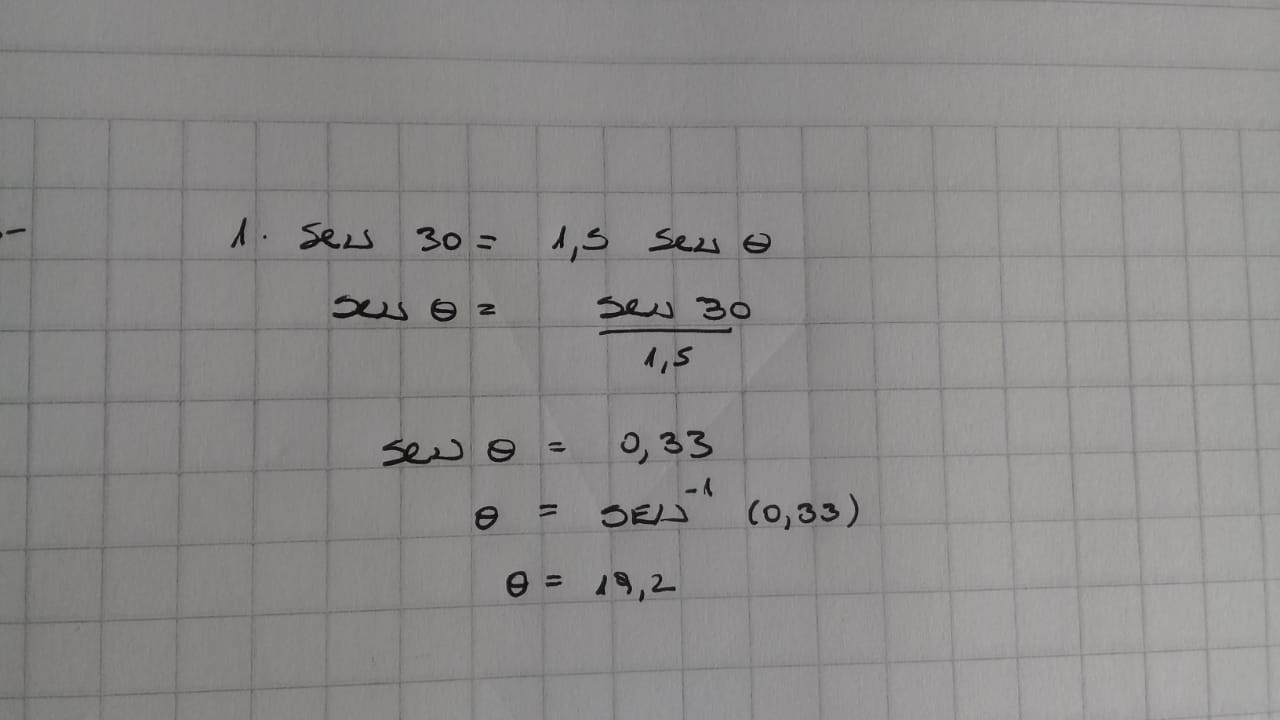 1. sen 30 = 1,5 sen θ
sen θ = sen 30 / 1,5
sen θ = 0,33
θ = SEN⁻¹ (0,33)
θ = 19,2